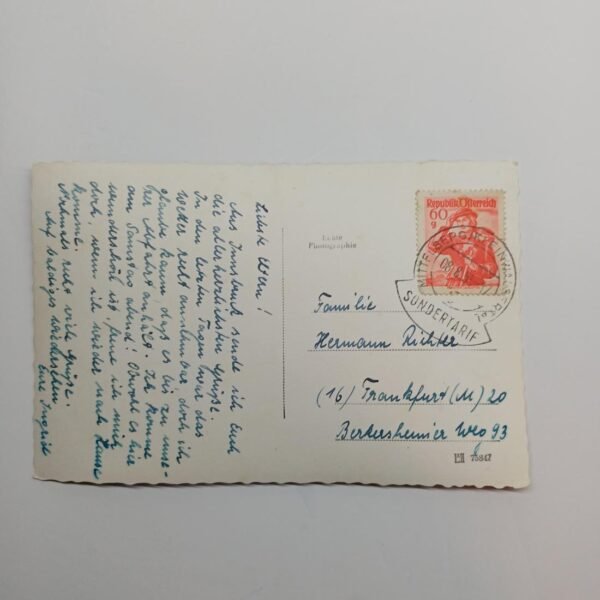 Liebste Eltern!
Aus Innsbruck sende ich Euch
die allerherzlichsten Grüße.
In den letzten Tagen war das
Wetter recht annehmbar, doch ich
glaube kaum, daß es bis zu unse-
rer Abfahrt anhält. Ich komme
am Samstag abend! Obwohl es hier
wunderschön ist, freue ich mich
doch, wenn ich wieder nach Hause
komme.
Nochmals recht viele Grüße.
Auf baldiges Wiedersehen
Eure Ingrid
Echte
Photographie
Republik Österreich
60
g
MITTELBERG (KLEINWALSERTAL)
SONDERTARIF
Familie
Hermann Richter
(16) Frankfurt (M) 20
Bertersheimer Weg 93
75847